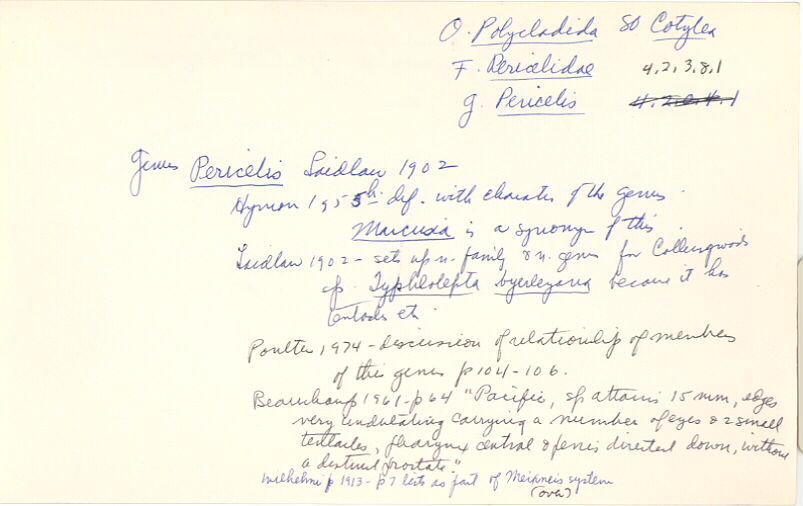 O. Polycladida SO Cotylea
F. Pericelidae 4,2,3,8,1
g. Pericelis
Genus Pericelis Laidlaw 1902
Hyman 1955h. def. with characters of the genus.
Marcusia is a synonym of this.
Laidlaw 1902 - sets up n. family & n. genus for Collingwoods
sp. Typhlolepta byerleyana because it has
tentacles etc.
Poulter 1974 - discussion of relationship of members
of this genus p 104-106.
Beauchamp 1961 - p 64 "Pacific, sp attains 15 mm, edges
very undulating carrying a number of eyes & 2 small
tentacles, pharynx central & penis directed down, without
a distinct prostate."
Wilhelmi p 1913 - p 7 lists as part of Meixneis system
(ova)